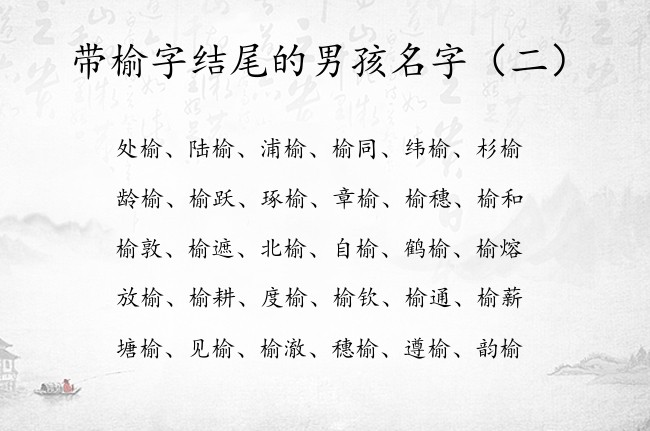 带榆字结尾的男孩名字（二）
处榆、陆榆、浦榆、榆同、纬榆、杉榆
龄榆、榆跃、琢榆、章榆、榆穗、榆和
榆敦、榆遮、北榆、自榆、鹤榆、榆熔
放榆、榆耕、度榆、榆钦、榆通、榆薪
塘榆、见榆、榆澈、穗榆、遵榆、韵榆